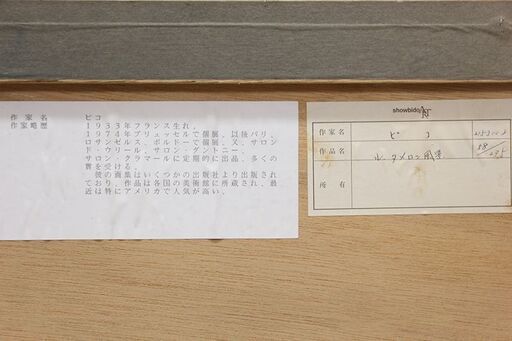 作家名 ピコ
作家略歴 1933年フランス生れ。
1974年ブリュッセルで個展、以後パリ、
ロサンゼルス、ボルドーで個展、又、サロン
ド・ウリール、サロン・ダントニー、
サロン・クラマールに定期的に出品、多くの
賞を受ける。
彼の画集はいくつかの出版社より出版され
ており、作品は各国の美術館に所蔵され、最
近は特にアメリカで人気が高い。
showbido/
作家名 ピコ
作品名
58/275
所有